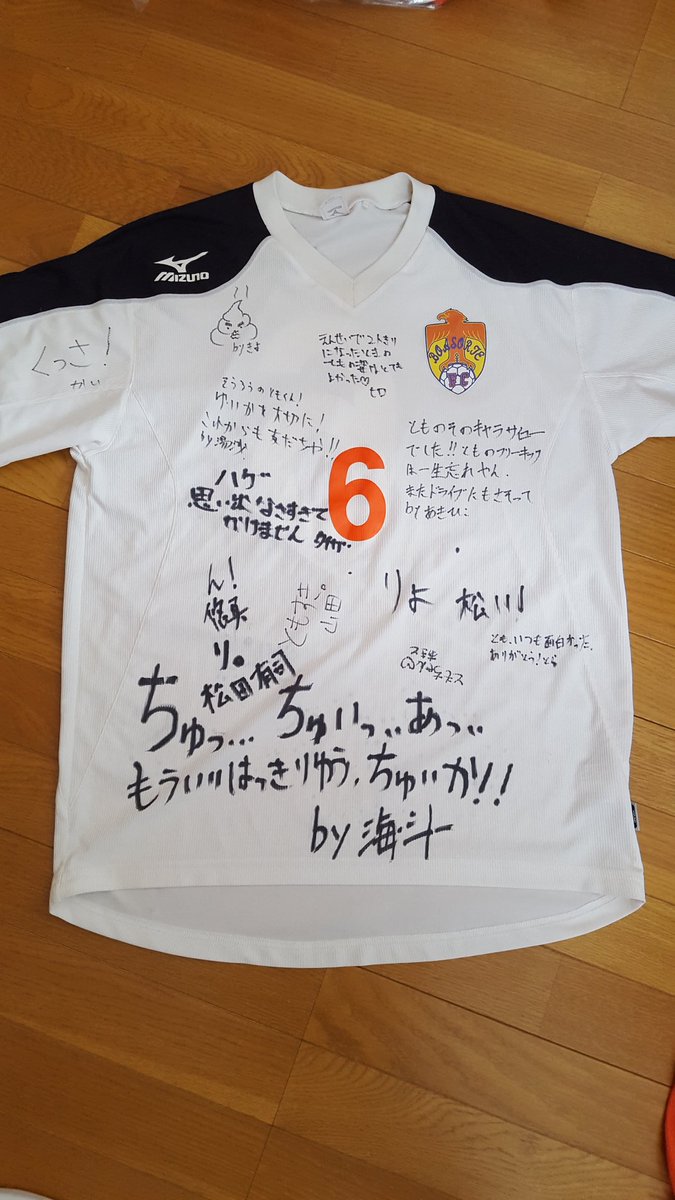 MIZUNO
BOASORTE
FC
くっさ!
かい
byきよ
えんせいで2人きり
になったときの
よかった♡
そうろうのともくん!
ゆいかを大切に!
これからも友だちや!!
by
とものそのキャラサイコー
でした!!とものフリーキック
は一生忘れやん.
またドライブにもさそって
byあきひこ
6
ハゲ
思い出なさすぎて
かけません
ん!
悠真
り。
松田有司
ともゆき
りよ
松川
とも、いつも面白かった。
ありがとう!とら
ちゅっ... ちゅいっ、、あっ、、
もういいはっきりゆう、ちゅいか!!
by 海斗